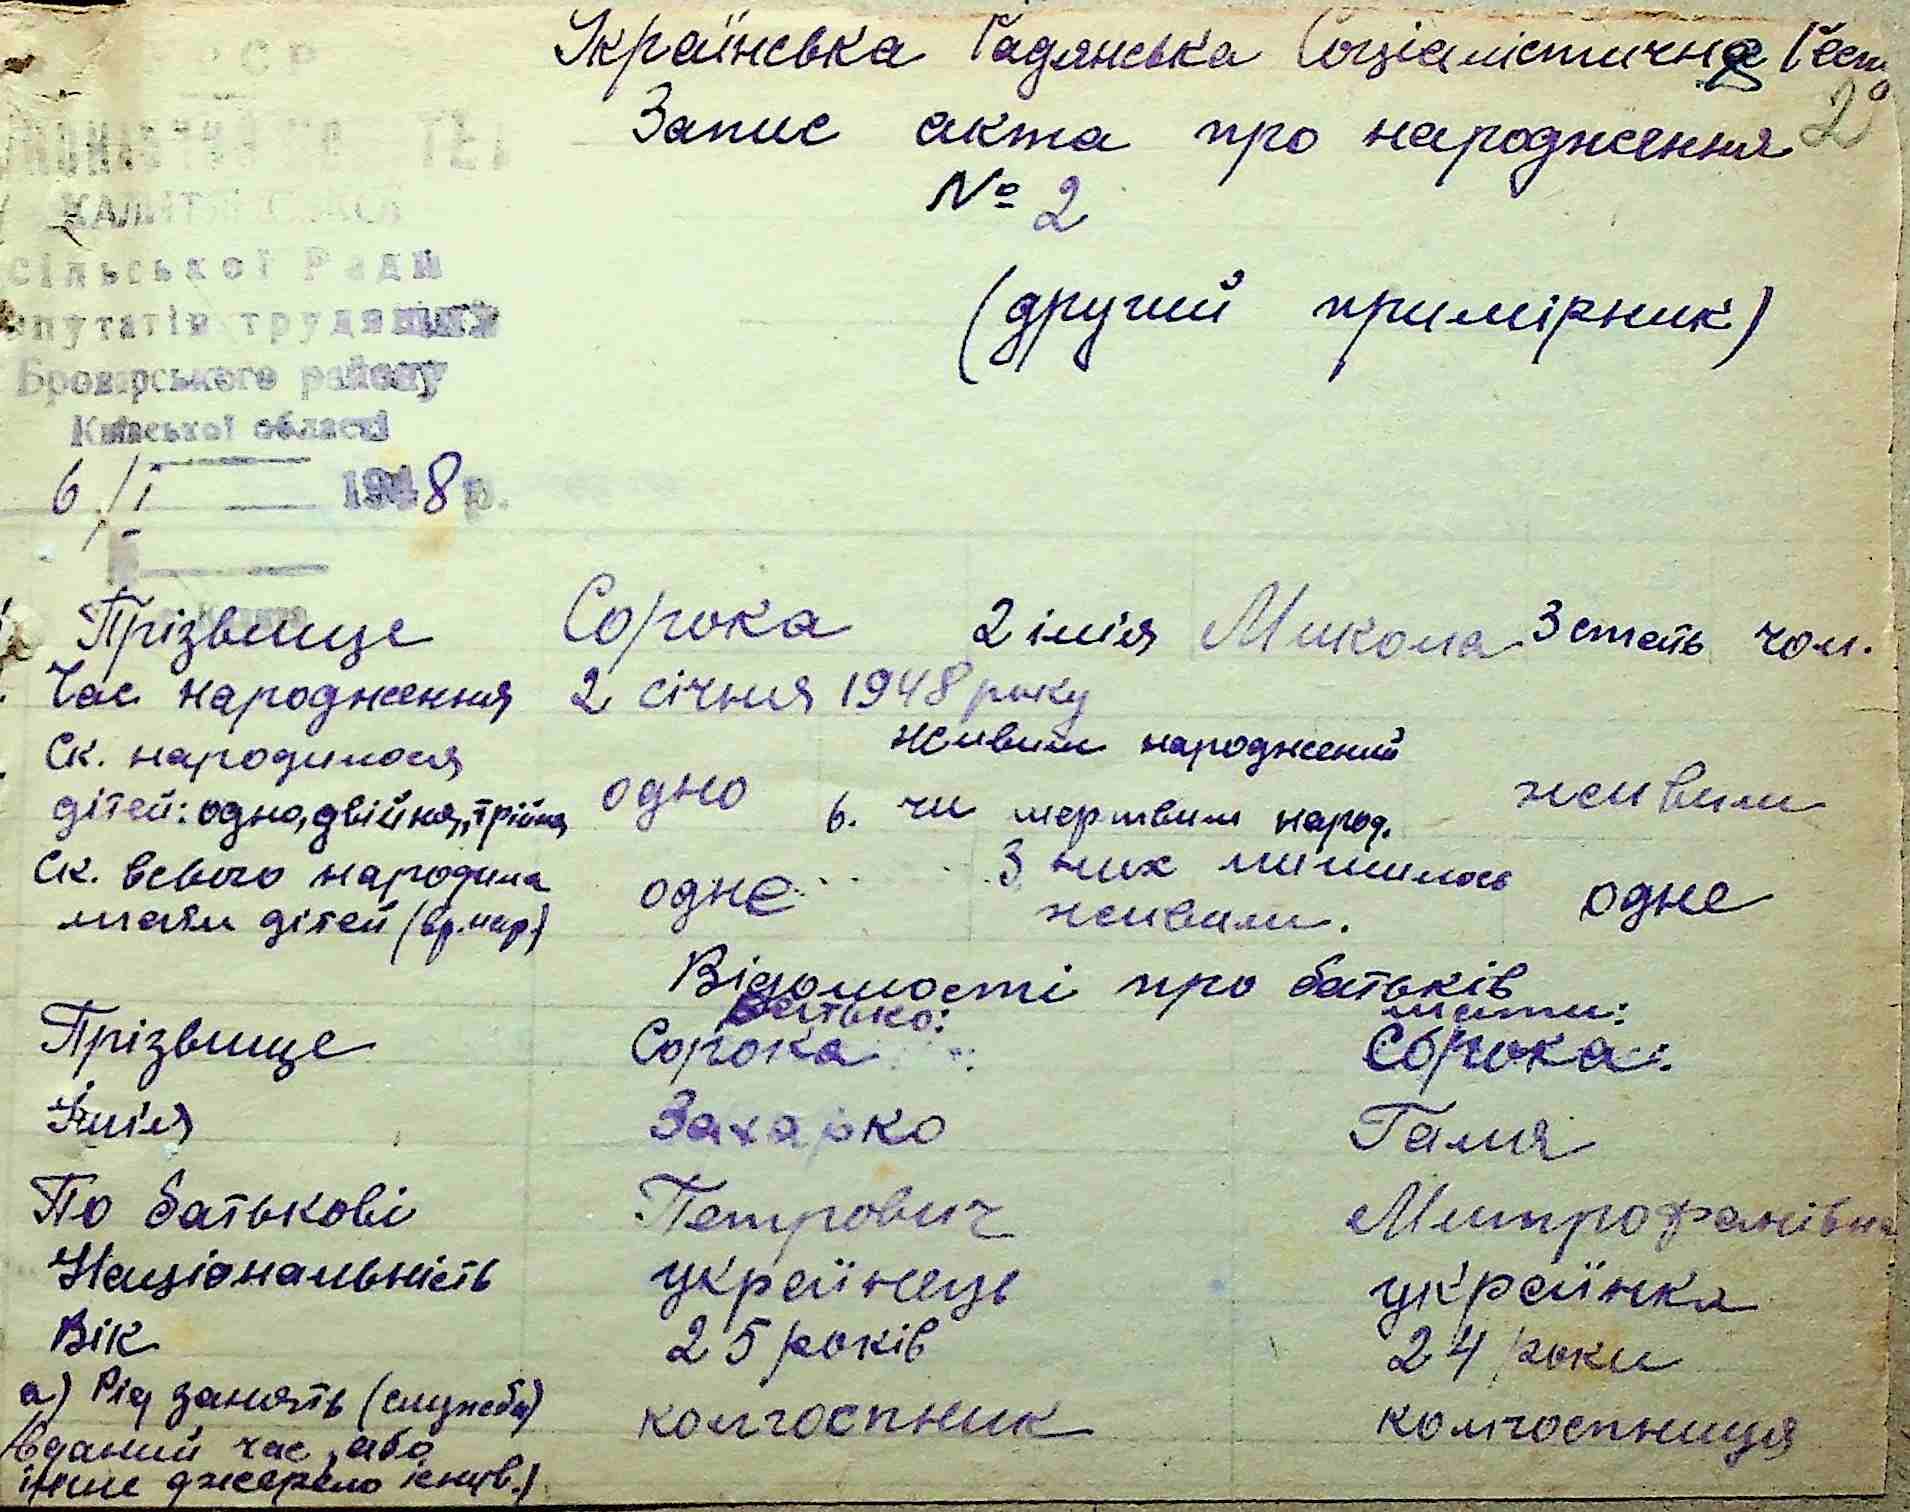 Українська Радянська Соціалістична Респ
2
Запис акта про народження
№ 2
(другий примірник)
сільської Ради
депутатів трудящих
Броварського району
Київської області
6/I 1948 р.
Прізвище Сорока 2 імія Микола 3 стать чол.
Час народження 2 січня 1948 року
Ск. народилося дітей: одно, двійня, трійня одно
6. живим народжений чи мертвим народ. живим
Ск. всього народила мати дітей (вр. нар.) одне
З них лишилось живими. одне
Відомості про батьків
Батько: мати:
Прізвище Сорока Сорока
Імія Захарко Галя
По батькові Петрович Митрофанівна
Національність українець українка
Вік 25 років 24 роки
а) Рід занять (служби) колгоспник колгоспниця
в даний час, або
інше джерело існув.)